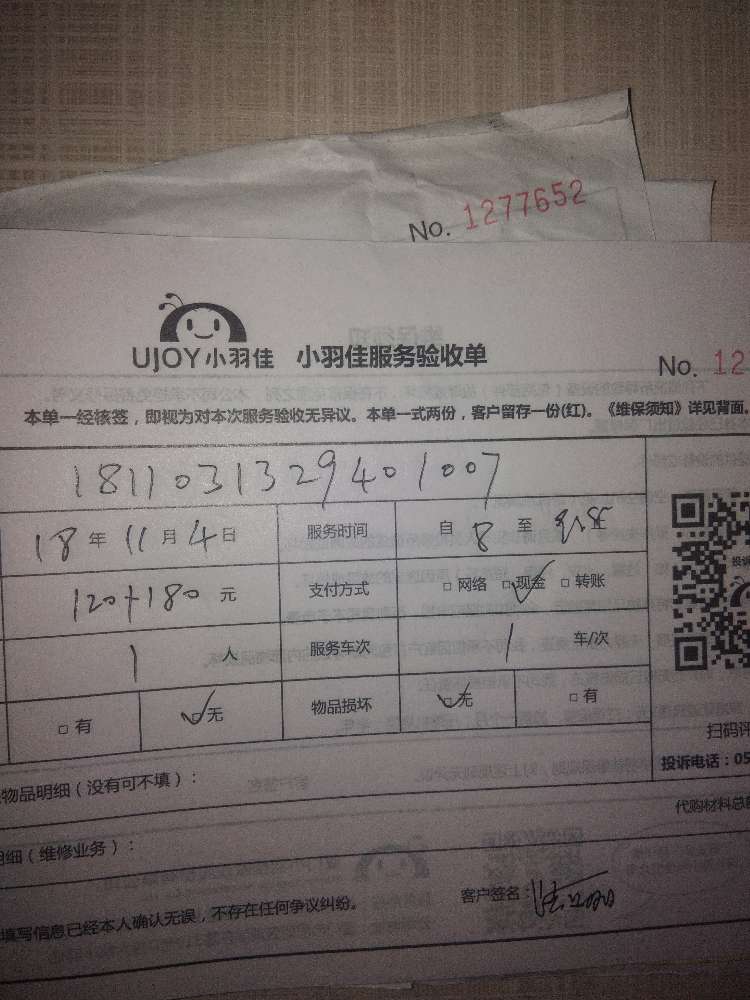 No. 1277652
UJOY小羽佳 小羽佳服务验收单
No. 12
本单一经核签，即视为对本次服务验收无异议。本单一式两份，客户留存一份(红)。《维保须知》详见背面。
1811031329401007
18年11月4日 服务时间 自8至
120+180元 支付方式 □网络 ☑现金 □转账
1人 服务车次 1车/次
□有 ☑无 物品损坏 ☑无 □有
扫码评
物品明细（没有可不填）： 投诉电话：05
代购材料总
细（维修业务）：
填写信息已经本人确认无误，不存在任何争议纠纷。 客户签名：